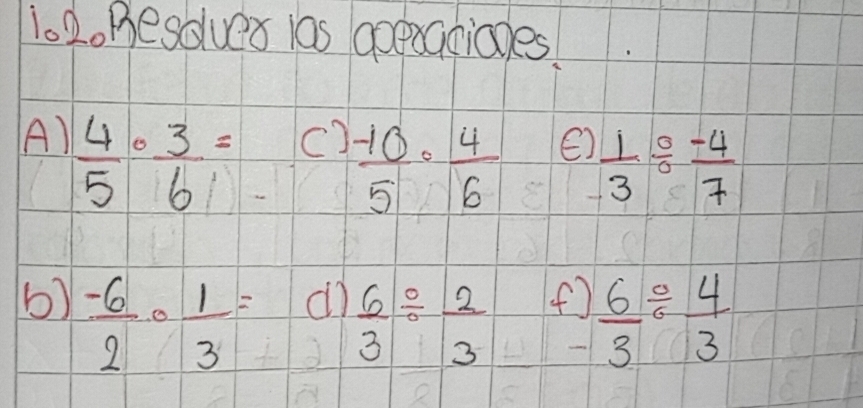 1.2. Resolver las operaciones.
A) 4/5 · 3/6 = C) -10/5 · 4/6 E) 1/-3 ÷ -4/7
b) -6/2 · 1/3 = d) 6/3 ÷ 2/3 f) 6/-3 ÷ 4/3